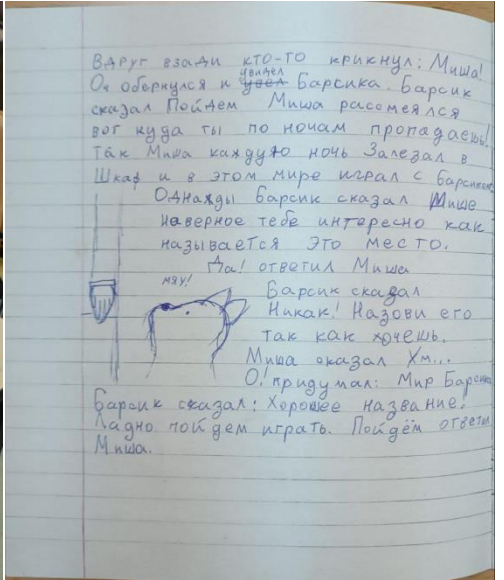 Вдруг взади кто-то крикнул: Миша!
Он обернулся и увидел Барсика. Барсик
сказал Пойдем Миша рассмеялся
вот куда ты по ночам пропадаешь!
Так Миша каждую ночь Залезал в
Шкаф и в этом мире играл с Барсиком.
Однажды Барсик сказал Мише
наверное тебе интересно как
называется это место.
Да! ответил Миша
мяу!
Барсик сказал
Никак! Назови его
так как хочешь.
Миша сказал Хм...
О! придумал: Мир Барсика
Барсик сказал: Хорошее название!
Ладно пойдем играть. Пойдём ответил
Миша.